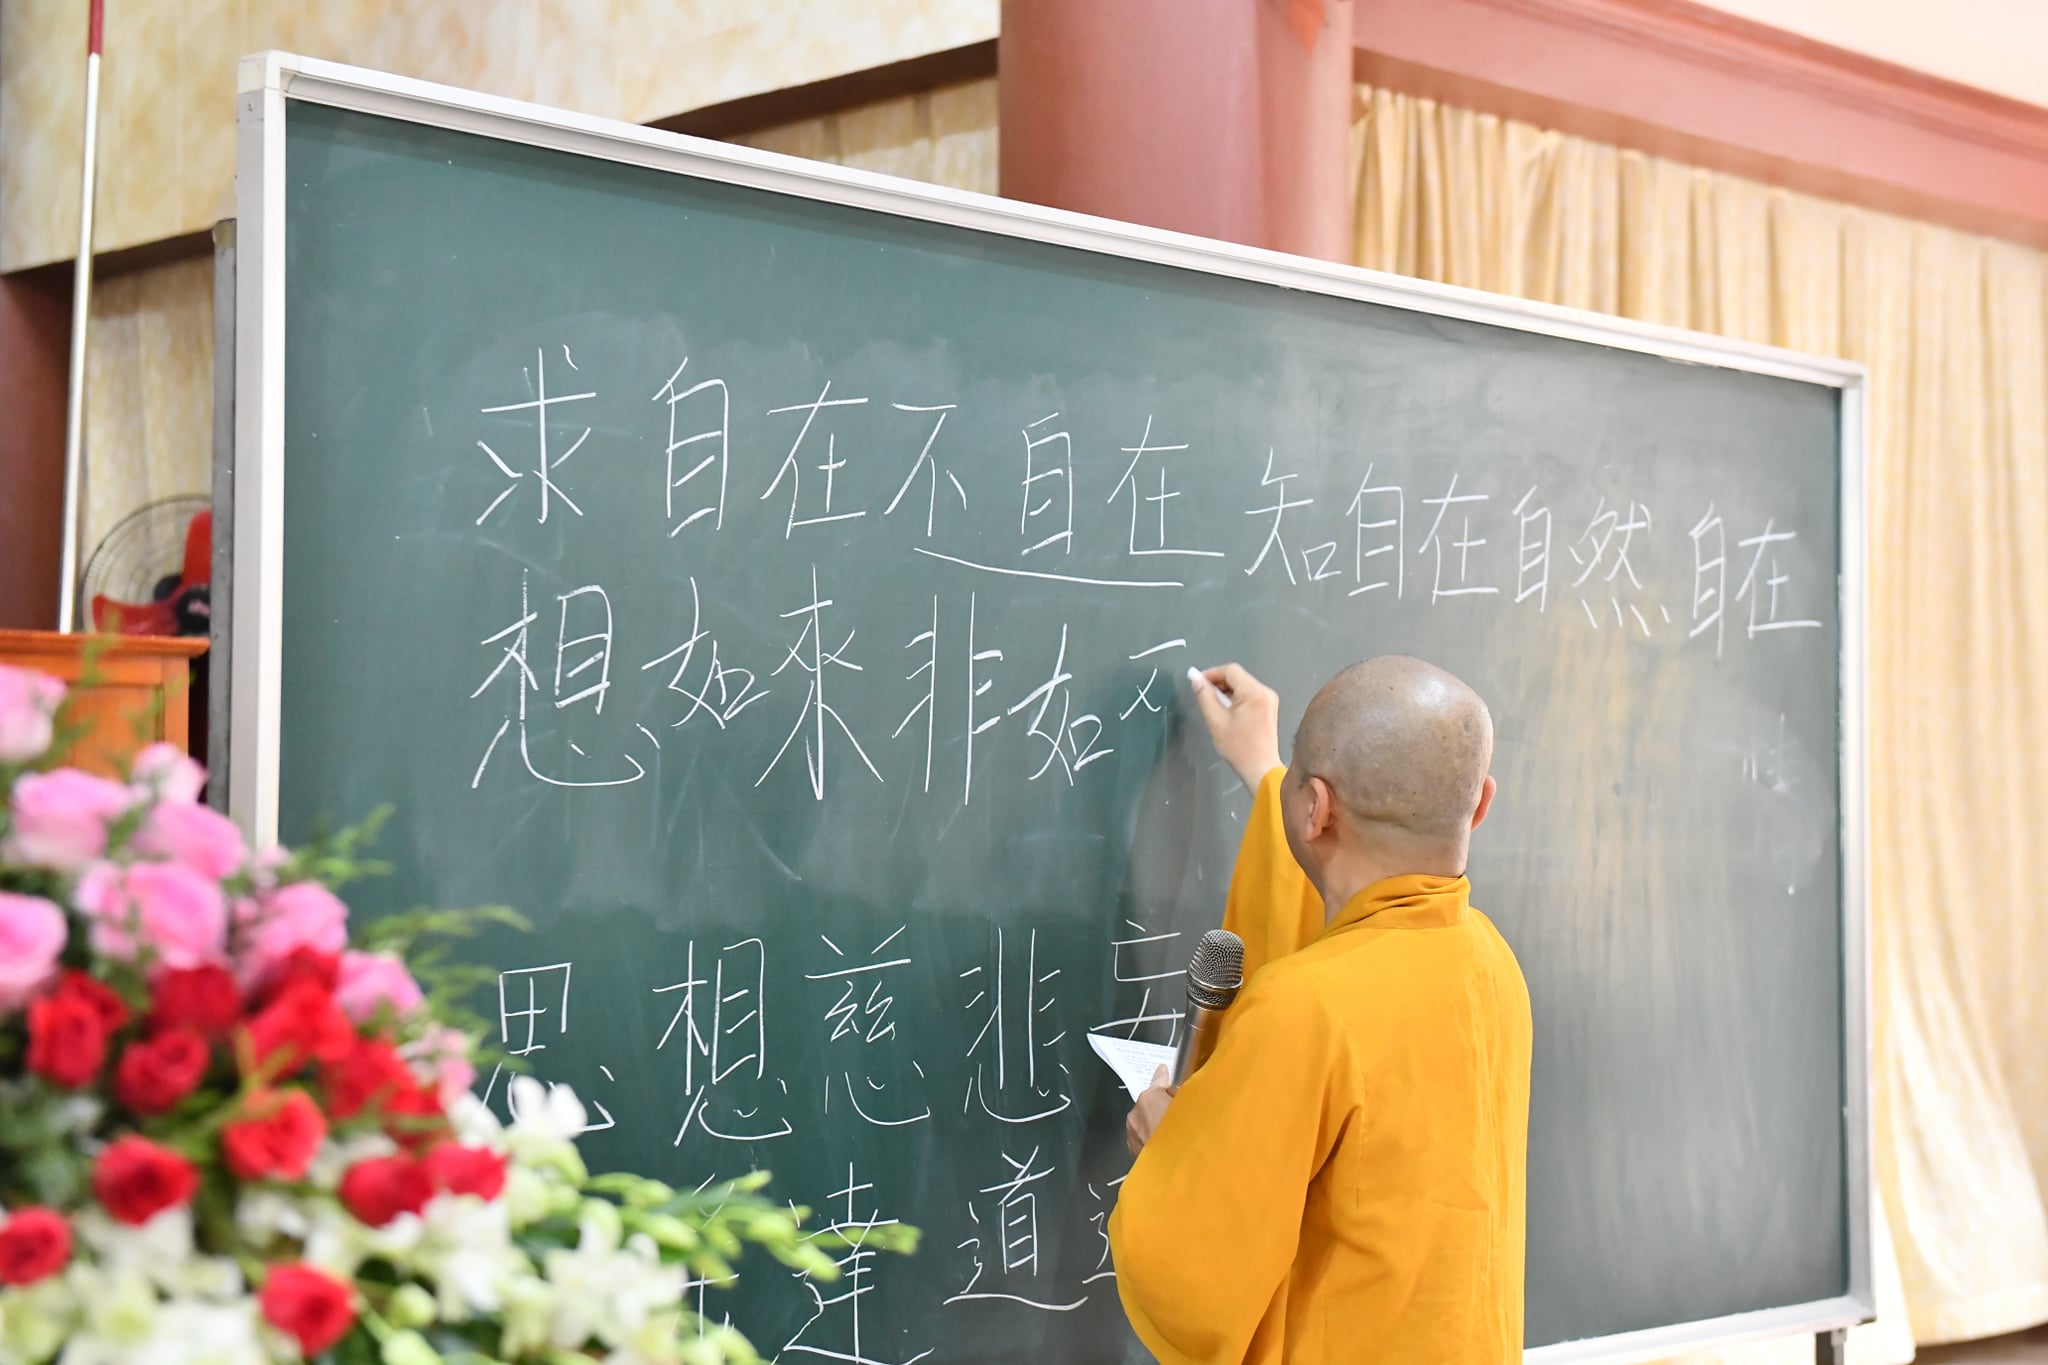 求自在不自在 知自在自然自在
想如來非如
思想慈悲妄
達道